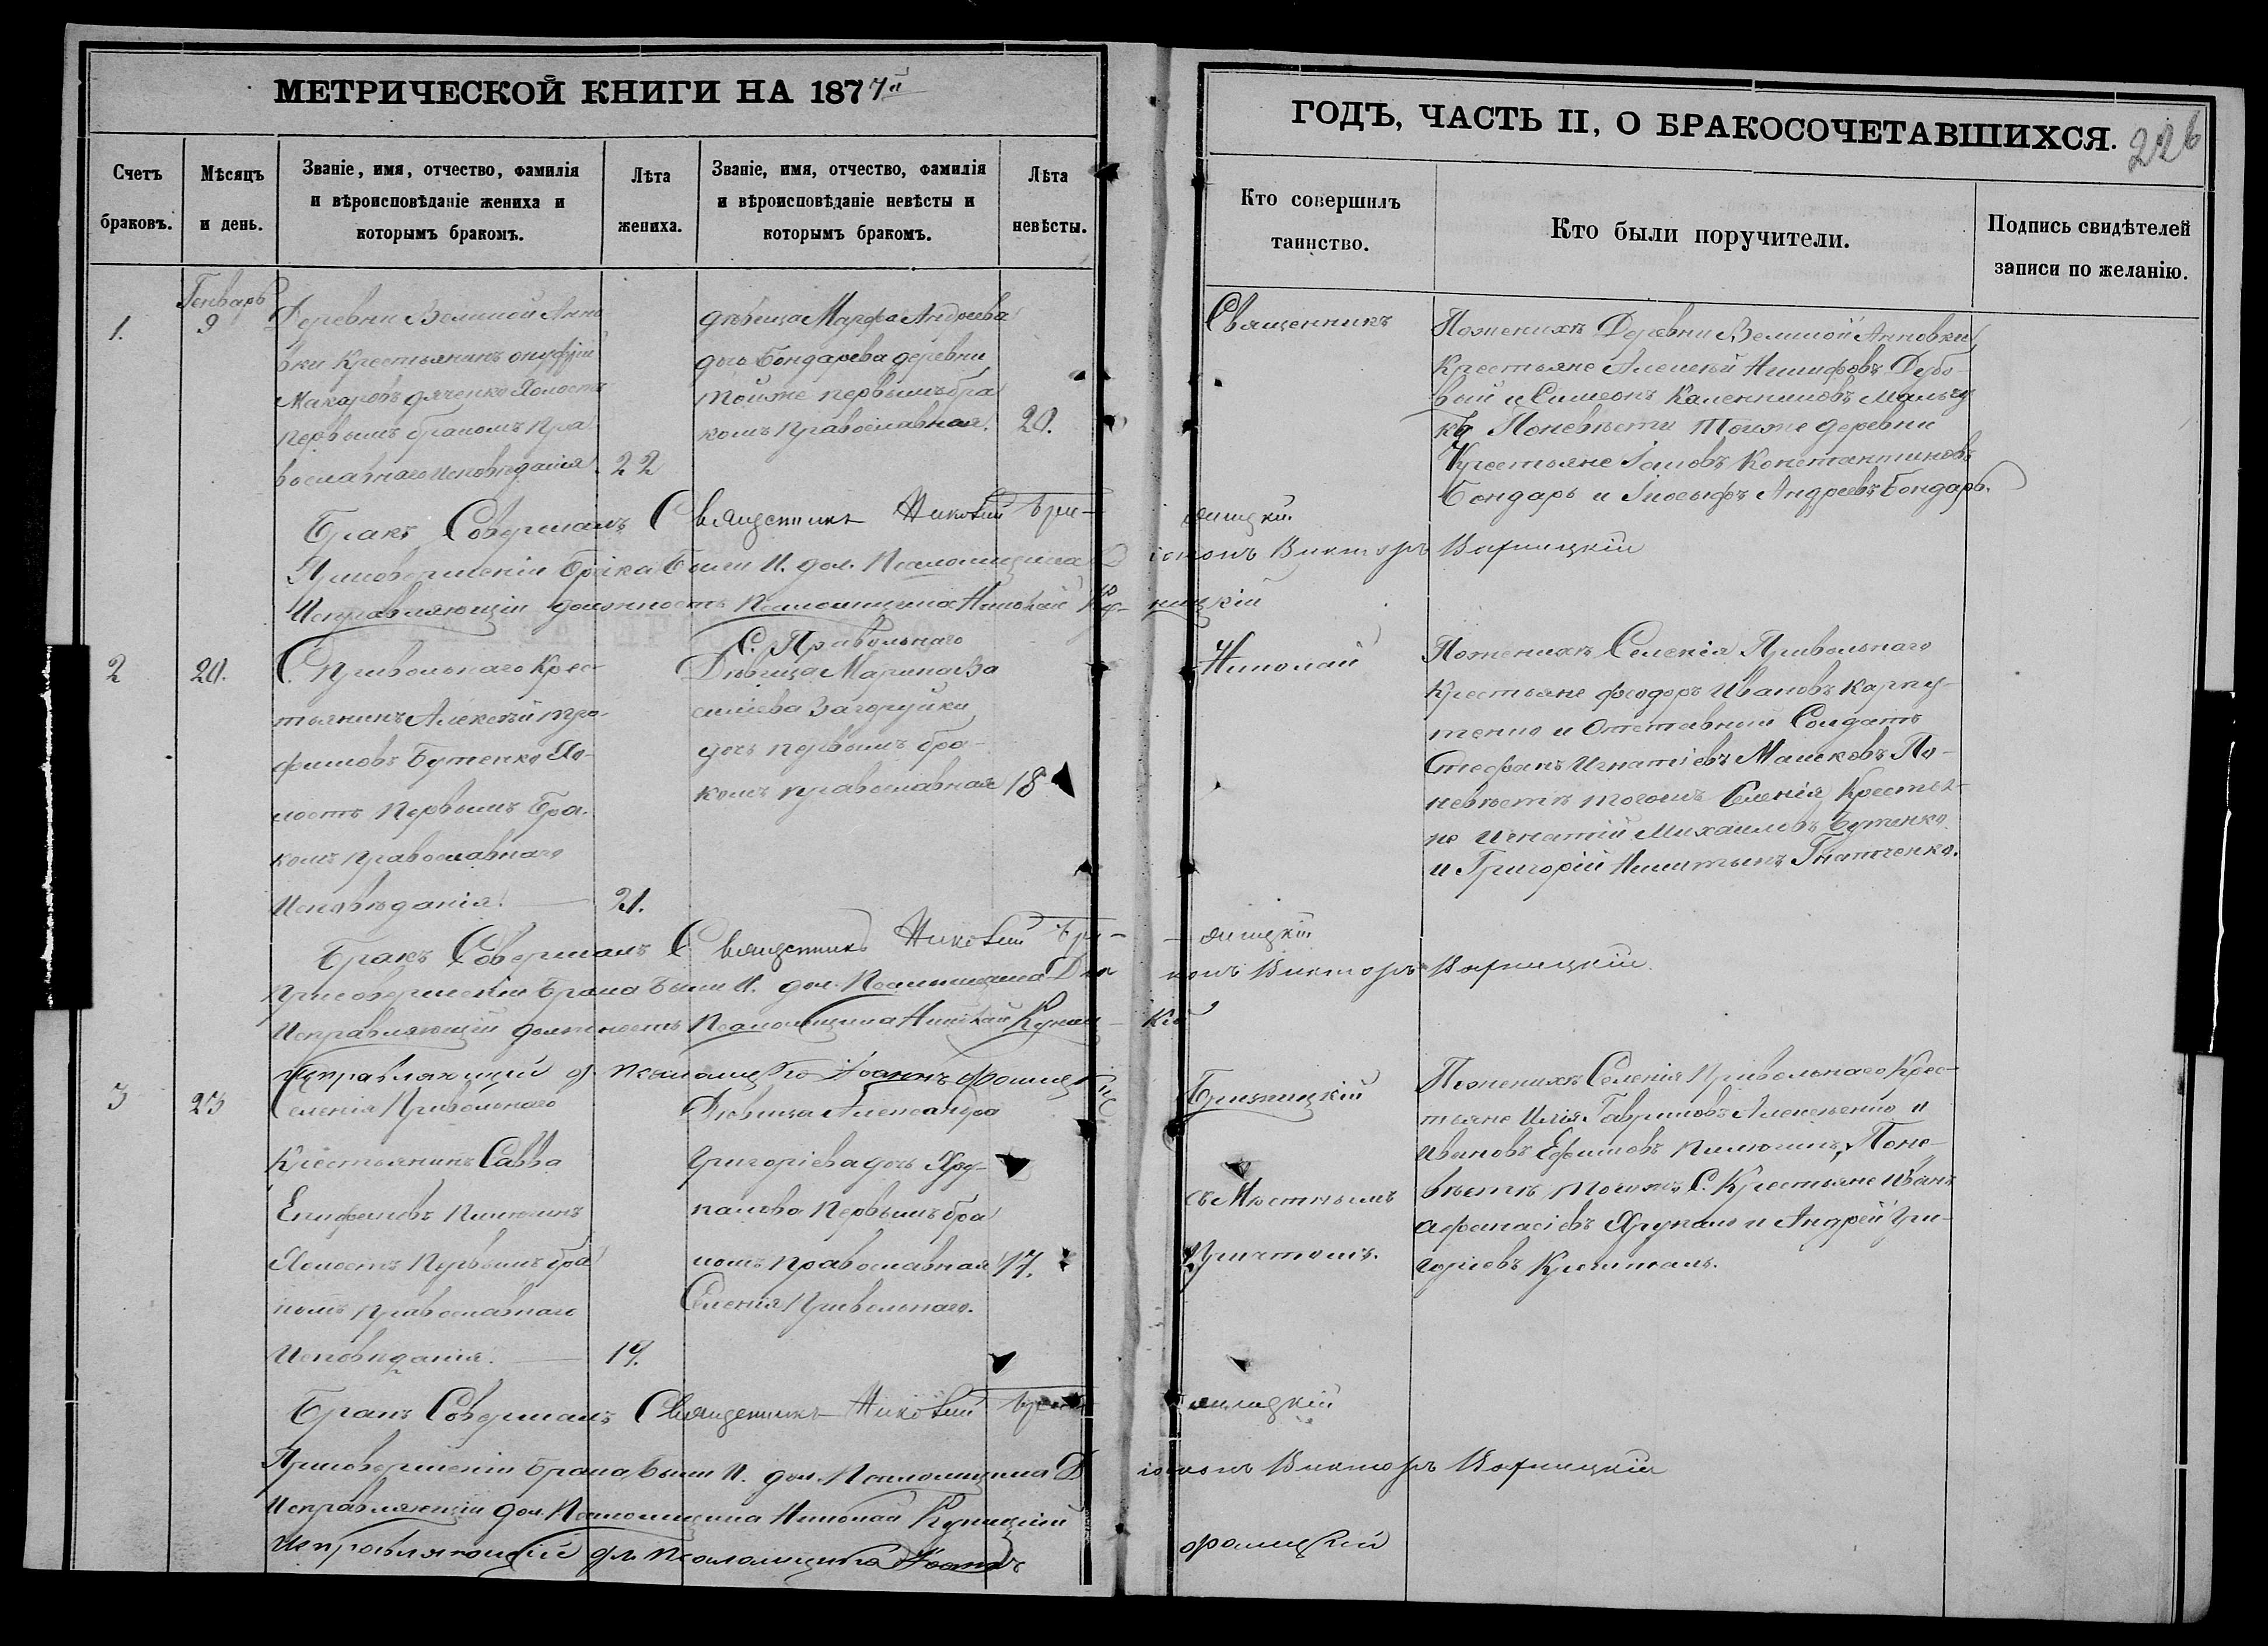 МЕТРИЧЕСКОЙ КНИГИ НА 1877й
Счетъ браковъ.
Мѣсяцъ и день.
Званіе, имя, отчество, фамилія
и вѣроисповѣданіе жениха и
которымъ бракомъ.
Лѣта жениха.
Званіе, имя, отчество, фамилія
и вѣроисповѣданіе невѣсты и
которымъ бракомъ.
Лѣта невѣсты.
ГОДЪ, ЧАСТЬ II, О БРАКОСОЧЕТАВШИХСЯ.
226
Кто совершилъ
таинство.
Кто были поручители.
Подпись свидѣтелей
записи по желанію.
1.
Генварь
9
Деревни Великой Анно
вки Крестьянинъ онуфрій
Макаровъ дяченко Холостъ
первымъ бракомъ пра
вославнаго исповѣданія
22
дѣвица Марфа Андреева
дочь Бондарева деревни
тойже первымъ бра
комъ православная.
20.
Священникъ
Поженихѣ Деревни Великой Анновки
Крестьяне Алексѣй Никифоровъ Дубо-
вый и Симеонъ Калениковъ
Поневѣсти тоиже деревни
Крестьяне Іаковъ Константиновъ
Бондарь и Іиосыфъ Андреевъ Бондарь.
Бракъ Совершалъ Священникъ Николай
Присовершеніи брака были И. дол. Псаломщика Діаконъ Викторъ
Исправляющій должность Псаломщика Николай
2
20.
С. Привольнаго Крес-
тьянинъ Алексѣй тро-
фимовъ Бутенко Хо-
лостъ Первымъ Бра-
комъ православнаго
Исповѣданія.
21.
С. Привольнаго
Дѣвица Марина Ва
силіева Загоруйки
дочь первымъ бра-
комъ православная
18
Николай
Поженихѣ Селенія Привольнаго
Крестьяне феодоръ Ивановъ Карпу-
тенко и Отставный Солдатъ
Стефанъ Игнатіевъ Машковъ По-
невѣстѣ тогожъ Селенія Крестья-
не Игнатій Михаиловъ Бутенко
и Григорій Никитинъ Гнатченко.
Бракъ Совершалъ Священникъ Николай
Присовершеніи брака были И. дол. Псаломщика Діаконъ Викторъ
Исправляющій должность Псаломщика Николай
Исправляющій д. псаломщика Іоаннъ
3
23
Селенія Привольнаго
Крестьянинъ Савва
Епифановъ
Холостъ Первымъ бра
комъ православнаго
Исповѣданія.
19.
Дѣвица Александра
Григоріева дочь
Первымъ бра
комъ православная
Селенія Привольнаго.
17.
съ Мѣстнымъ
Причтомъ.
Поженихѣ Селенія Привольнаго Крес-
тьяне Илія Гавриловъ Алексѣенко и
Ивановъ Ефимовъ Поне-
вѣстѣ тогожъ С. Крестьяне Иванъ
афанасіевъ и Андрей Гри-
горіевъ
Бракъ Совершалъ Священникъ Николай
Присовершеніи брака были И. дол. Псаломщика Діаконъ Викторъ
Исправляющій дол. Псаломщика Николай
Исправляющій дл. псаломщика Іоаннъ